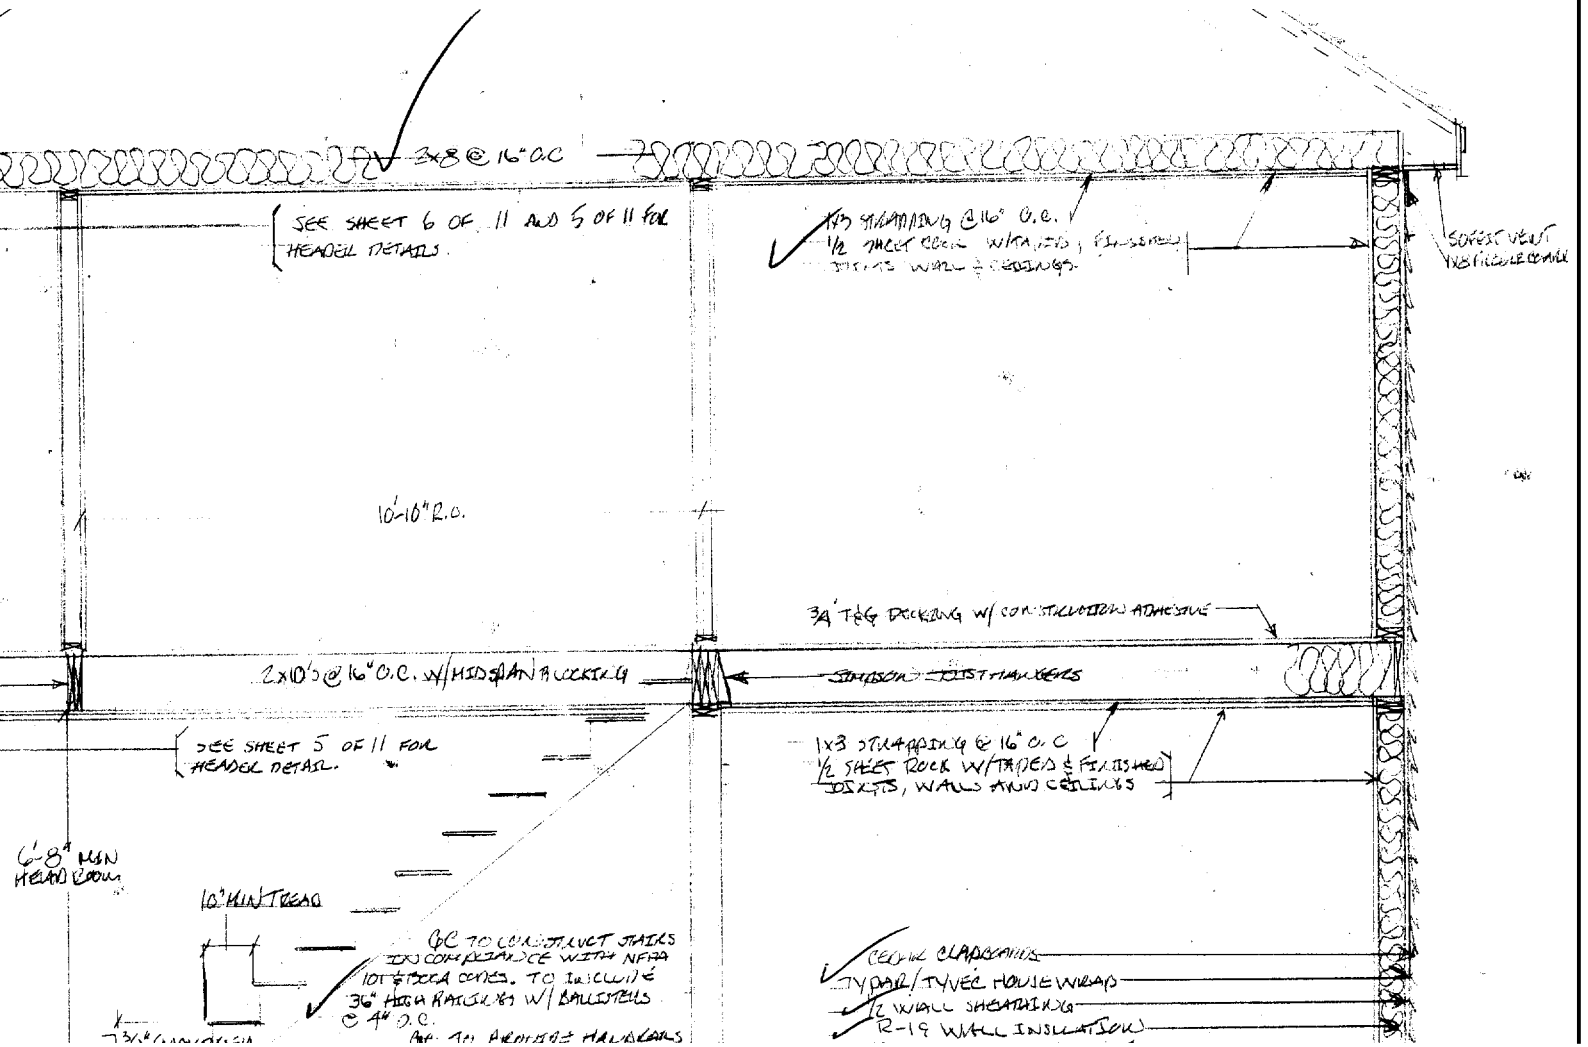 2x8 @ 16" O.C
SEE SHEET 6 OF 11 AND 5 OF 11 FOR
HEADER DETAILS.
1x3 STRAPPING @ 16" O.C.
1/2 SHEET ROCK W/TAPED, FINISHED
JOINTS WALL & CEILINGS.
SOFFIT VENT
10'-10" R.O.
3/4" T&G DECKING W/ CONSTRUCTION ADHESIVE
2x10's @ 16" O.C. W/ MIDSPAN BLOCKING
SIMPSON JOIST HANGERS
SEE SHEET 5 OF 11 FOR
HEADER DETAIL.
1x3 STRAPPING @ 16" O.C
1/2 SHEET ROCK W/TAPED & FINISHED
JOINTS, WALLS AND CEILINGS
6'-8" MIN
HEADROOM
10" MIN TREAD
GC TO CONSTRUCT STAIRS
IN COMPLIANCE WITH NFPA
101 & BOCA CODES. TO INCLUDE
36" HIGH RAILINGS W/ BALLISTERS
@ 4" O.C.
TO PROVIDE HANDRAILS
CEDAR CLAPBOARDS
TYPAR/TYVEC HOUSE WRAP
1/2 WALL SHEATHING
R-19 WALL INSULATION